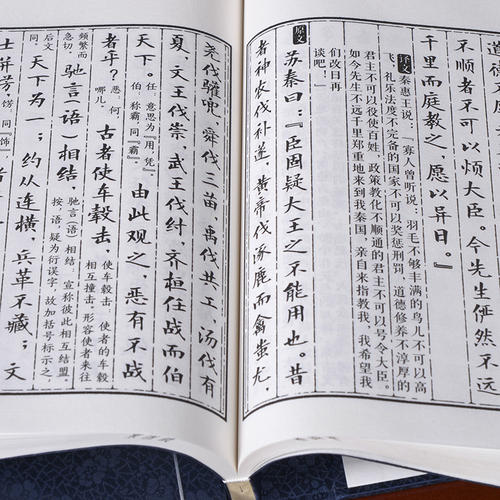 道德不厚
不顺者不可以烦大臣。今先生
千里而庭教之，愿以异日。』
译文 秦惠王说：『寡人曾听说：羽毛不够丰满的鸟儿不可以高
飞，礼乐法度不完备的国家不可以奖惩刑罚，道德修养不淳厚的
君主不可以役使百姓，政策教化不顺通的君主不可以号令大臣。
如今先生不远千里郑重地来到我秦国，亲自来指教我，我希望我
们改日再
谈吧！』
原文 苏秦曰：『臣固疑大王之不能用也。昔
者神农伐补遂，黄帝伐涿鹿而禽蚩尤，
尧伐驩兜，舜伐三苗，禹伐共工，汤伐有
夏，文王伐崇，武王伐纣，齐桓任战而伯
天下。任，意思为『用，凭』伯，称霸，同『霸』由此观之，恶有不战
者乎？恶，何，哪儿。古者使车毂击，使车毂击，使者的车毂相互撞击，形容使者来往
频繁而急切。驰言（语）相结，驰言（语）相结，宣称彼此相互结盟。按，语疑为衍误字，故加括号标示之，
后文同 天下为一；约从连横，兵革不藏；文
士并饬，饬，同『饰』